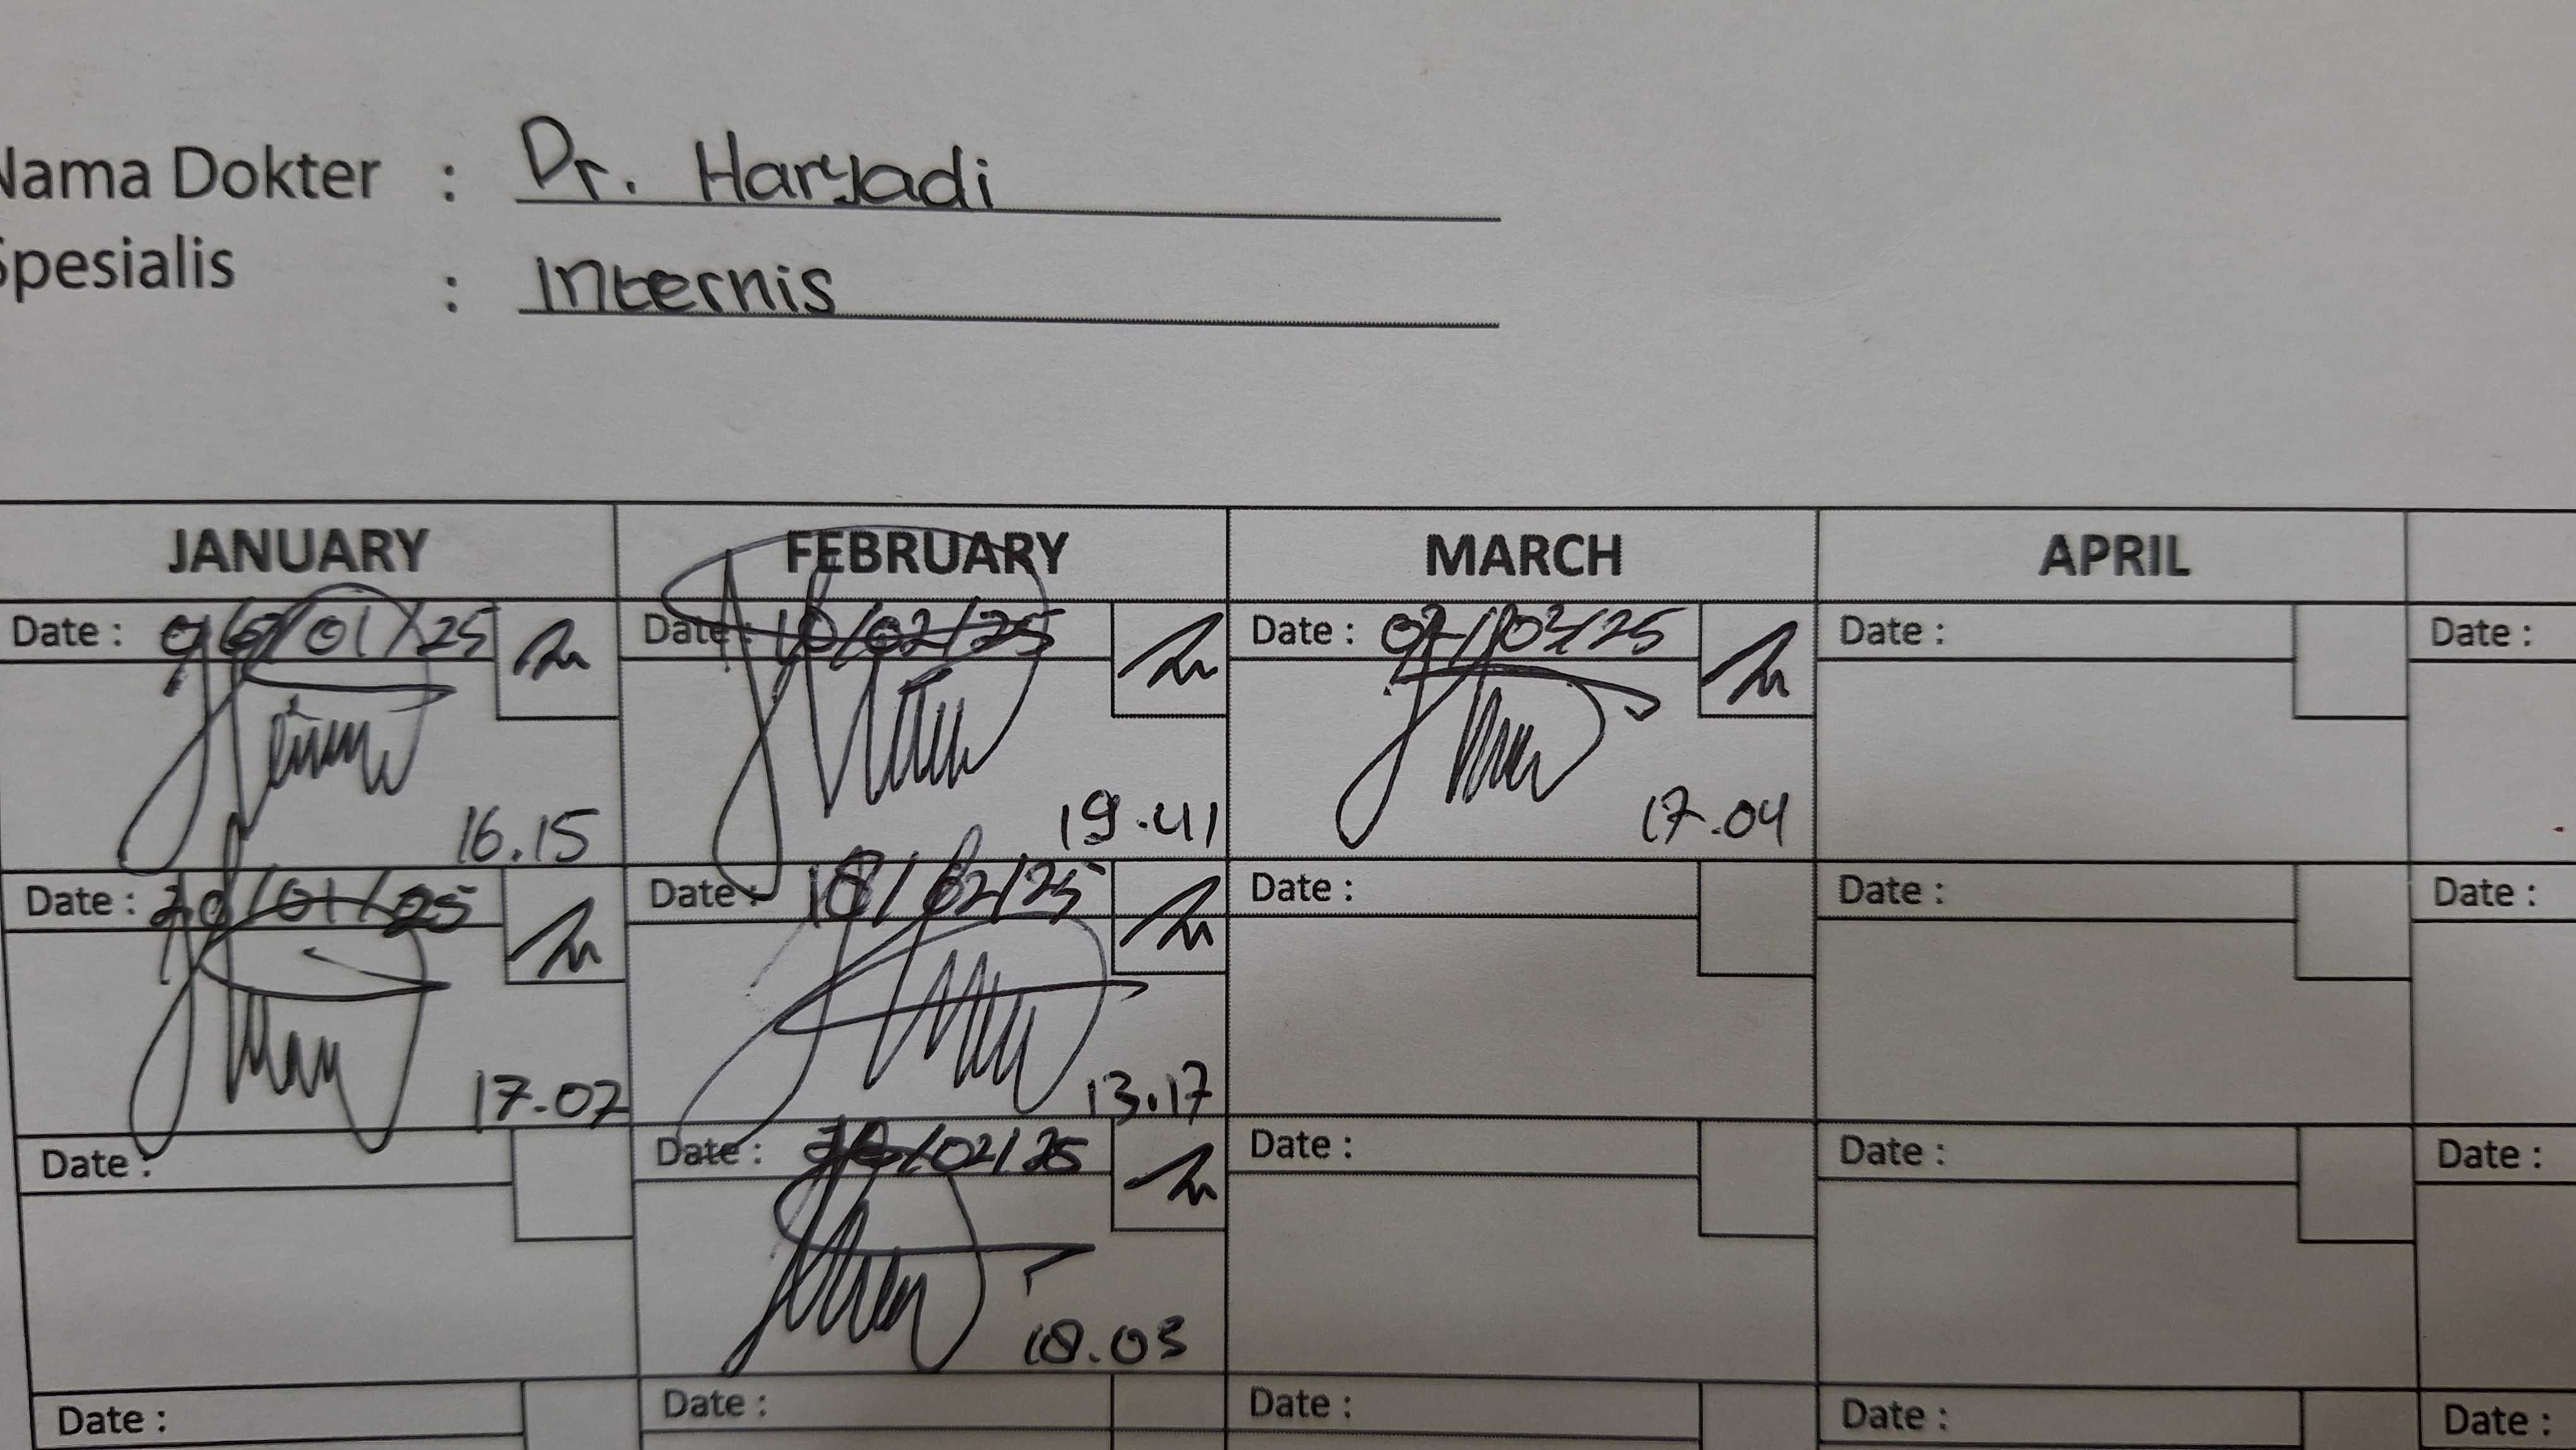 Nama Dokter : Dr. Haryadi
Spesialis : Internis
JANUARY FEBRUARY MARCH APRIL
Date : 06/01/25 Date : 10/02/25 Date : 07/03/25 Date : Date :
16.15 19.41 17.04
Date : /01/25 Date : 18/02/25 Date : Date : Date :
17.07 13.17
Date : Date : /02/25 Date : Date : Date :
18.03
Date : Date : Date : Date : Date :